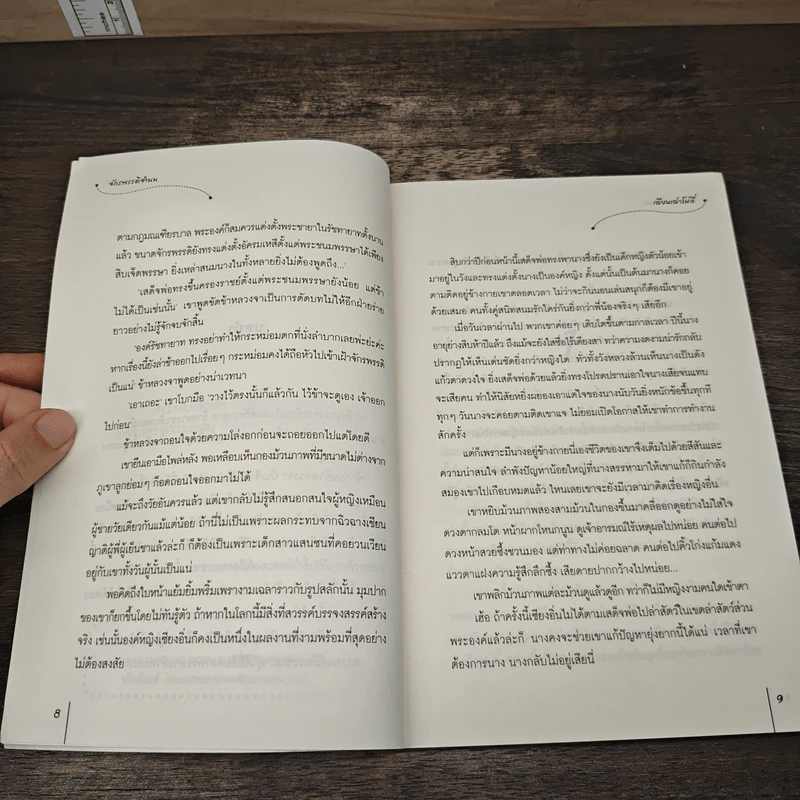 จักรพรรดิจำนน
ตามกฎมณเฑียรบาล พระองค์ก็สมควรแต่งตั้งพระชายาในรัชทายาทตั้งนาน
แล้ว ขนาดจักรพรรดิยังทรงแต่งตั้งอัครมเหสีตั้งแต่พระชนมพรรษาได้เพียง
สิบเจ็ดพรรษา ยิ่งเหล่าสนมนางในทั้งหลายยิ่งไม่ต้องพูดถึง...'
'เสด็จพ่อทรงขึ้นครองราชย์ตั้งแต่พระชนมพรรษายังน้อย แต่ข้า
ไม่ได้เป็นเช่นนั้น' เขาพูดขัดข้าหลวงจาเป็นการตัดบทไม่ให้อีกฝ่ายร่าย
ยาวอย่างไม่รู้จักจบจักสิ้น
'องค์รัชทายาท ทรงอย่าทำให้กระหม่อมตกที่นั่งลำบากเลยพ่ะย่ะค่ะ
หากเรื่องนี้ยังล่าช้าออกไปเรื่อยๆ กระหม่อมคงได้ถือหัวไปเข้าเฝ้าจักรพรรดิ
เป็นแน่' ข้าหลวงจาพูดอย่างน่าเวทนา
'เอาเถอะ' เขาโบกมือ 'วางไว้ตรงนั้นก็แล้วกัน ไว้ข้าจะดูเอง เจ้าออก
ไปก่อน'
ข้าหลวงจาถอนใจด้วยความโล่งอกก่อนจะถอยออกไปแต่โดยดี
เขายืนเอามือไพล่หลัง พอเหลือบเห็นกองม้วนภาพที่มีขนาดไม่ต่างจาก
ภูเขาลูกย่อมๆ ก็อดถอนใจออกมาไม่ได้
แม้จะถึงวัยอันควรแล้ว แต่เขากลับไม่รู้สึกสนอกสนใจผู้หญิงเหมือน
ผู้ชายวัยเดียวกันแม้แต่น้อย ถ้านี่ไม่เป็นเพราะผลกระทบจากฉิวฉางเชียน
ญาติผู้พี่ผู้เย็นชาแล้วล่ะก็ ก็ต้องเป็นเพราะเด็กสาวแสนซนที่คอยวนเวียน
อยู่กับเขาทั้งวันผู้นั้นเป็นแน่
พอคิดถึงใบหน้าแย้มยิ้มพริ้มเพรางามเฉลาราวกับรูปสลักนั้น มุมปาก
ของเขาก็ยกขึ้นโดยไม่ทันรู้ตัว ถ้าหากในโลกนี้มีสิ่งที่สวรรค์บรรจงสรรค์สร้าง
จริง เช่นนั้นองค์หญิงเซียงอิ่นก็คงเป็นหนึ่งในผลงานที่งามพร้อมที่สุดอย่าง
ไม่ต้องสงสัย
8
เฉียนเล่าโม่ลี่
สิบกว่าปีก่อนหน้านี้เสด็จพ่อทรงพานางซึ่งยังเป็นเด็กหญิงตัวน้อยเข้า
มาอยู่ในวังและทรงแต่งตั้งนางเป็นองค์หญิง ตั้งแต่นั้นเป็นต้นมานางก็คอย
ตามติดอยู่ข้างกายเขาตลอดเวลา ไม่ว่าจะกินนอนเล่นสนุกก็ต้องมีเขาอยู่
ด้วยเสมอ คนทั้งคู่สนิทสนมรักใคร่กันยิ่งกว่าพี่น้องจริงๆ เสียอีก
เมื่อวันเวลาผ่านไป พวกเขาค่อยๆ เติบโตขึ้นตามกาลเวลา ปีนี้นาง
อายุย่างสิบห้าปีแล้ว ถึงแม้จะยังใสซื่อไร้เดียงสา ทว่าความงดงามน่ารักกลับ
ปรากฏให้เห็นเด่นชัดยิ่งกว่าหญิงใด ทั่วทั้งวังหลวงล้วนเห็นนางเป็นดัง
แก้วตาดวงใจ ยิ่งเสด็จพ่อด้วยแล้วยิ่งทรงโปรดปรานเอาใจนางเสียจนแทบ
จะเสียคน ทำให้นิสัยหยิ่งผยองเอาแต่ใจของนางนับวันยิ่งหนักข้อขึ้นทุกที
ทุกๆ วันนางจะคอยตามติดเขาแจ ไม่ยอมเปิดโอกาสให้เขาทำการทำงาน
สักครั้ง
แต่ก็เพราะมีนางอยู่ข้างกายนี่เองชีวิตของเขาจึงเต็มไปด้วยสีสันและ
ความน่าสนใจ ลำพังปัญหาน้อยใหญ่ที่นางสรรหามาให้เขาแก้ก็กินกำลัง
สมองเขาไปเกือบหมดแล้ว ไหนเลยเขาจะยังมีเวลามาคิดเรื่องหญิงอื่น
เขาหยิบม้วนภาพสองสามม้วนในกองขึ้นมาคลี่ออกดูอย่างไม่ใส่ใจ
ดวงตากลมโต หน้าผากโหนกนูน ดูเจ้าอารมณ์ไร้เหตุผลไปหน่อย คนต่อไป
ดวงหน้าสวยซึ้งชวนมอง แต่ท่าทางไม่ค่อยฉลาด คนต่อไปคิ้วโก่งแก้มแดง
แววตาแฝงความรู้สึกลึกซึ้ง เสียดายปากกว้างไปหน่อย...
เขาพลิกม้วนภาพแต่ละม้วนดูแล้วดูอีก ทว่าก็ไม่มีหญิงงามคนใดเข้าตา
เฮ้อ ถ้าครั้งนี้เซียงอิ่นไม่ได้ตามเสด็จพ่อไปล่าสัตว์ในเขตล่าสัตว์ส่วน
พระองค์แล้วล่ะก็ นางคงจะช่วยเขาแก้ปัญหายุ่งยากนี้ได้แน่ เวลาที่เขา
ต้องการนาง นางกลับไม่อยู่เสียนี่
9